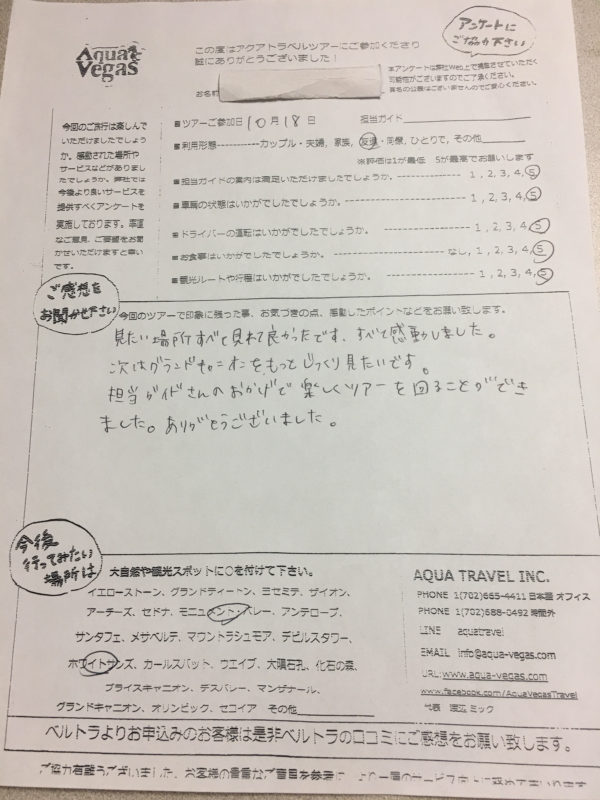 Aqua Vegas
この度はアクアトラベルツアーにご参加くださり
誠にありがとうございました！
アンケートに
ご協力下さい
本アンケートは弊社Web上で掲載させていただく
可能性がございますのでご了承ください。
実名の公表はございませんのでご安心ください。
お名前
今回のご旅行は楽しんで
いただけましたでしょう
か。感動された場所や
サービスなどがありまし
たでしょうか。弊社では
今後より良いサービスを
提供すべくアンケートを
実施しております。率直
なご意見、ご要望をお聞
かせいただけますと幸い
です。
■ツアーご参加日 10 月 18 日 担当ガイド
■利用形態-----------カップル・夫婦, 家族, 友達・同僚, ひとりで, その他
※評価は1が最低 5が最高でお願いします
■担当ガイドの案内は満足いただけましたでしょうか。 ---------------- 1, 2, 3, 4, 5
■車輌の状態はいかがでしたでしょうか。 ---------------- 1, 2, 3, 4, 5
■ドライバーの運転はいかがでしたでしょうか。 ---------------- 1, 2, 3, 4, 5
■お食事はいかがでしたでしょうか。 ---------------- なし, 1, 2, 3, 4, 5
■観光ルートや行程はいかがでしたでしょうか。 ---------------- 1, 2, 3, 4, 5
ご感想を
お聞かせ下さい
今回のツアーで印象に残った事、お気づきの点、感動したポイントなどをお願い致します。
見たい場所すべて見れて良かったです。すべて感動しました。
次はグランドキャニオンをもっとじっくり見たいです。
担当ガイドさんのおかげで楽しくツアーを回ることができ
ました。ありがとうございました。
今後
行ってみたい
場所は
大自然や観光スポットに○を付けて下さい。
イエローストーン、グランドティートン、ヨセミテ、ザイオン、
アーチーズ、セドナ、モニュメントバレー、アンテロープ、
サンタフェ、メサベルデ、マウントラシュモア、デビルスタワー、
ホワイトサンズ、カールスバット、ウエイブ、大隕石孔、化石の森、
ブライスキャニオン、デスバレー、マンザナール、
グランドキャニオン、オリンピック、セコイア その他
AQUA TRAVEL INC.
PHONE 1(702)665-4411 日本語 オフィス
PHONE 1(702)688-0492 時間外
LINE aquatravel
EMAIL info@aqua-vegas.com
URL: www.aqua-vegas.com
www.facebook.com/AquaVegasTravel
代表 渡辺 ミック
ベルトラよりお申込みのお客様は是非ベルトラの口コミにご感想をお願い致します。
ご協力有難うございました。お客様の貴重なご意見を参考に